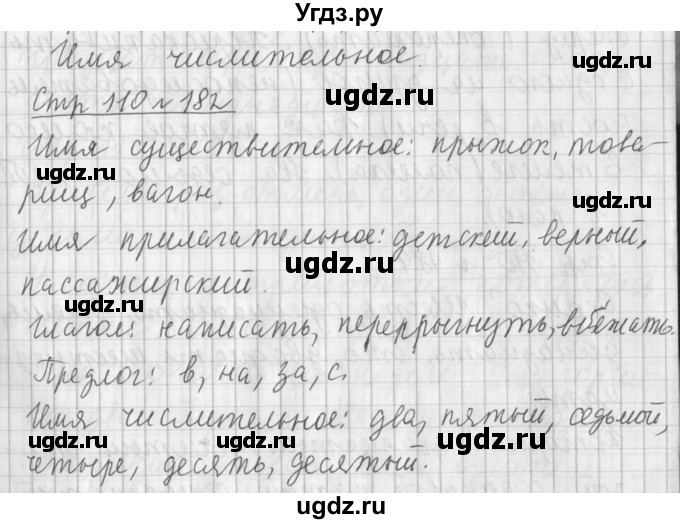 Угдз.ру
Имя числительное.
Стр 110 № 182
Имя существительное: прыжок, това-
рищ, вагон.
Имя прилагательное: детский, верный,
пассажирский.
Глагол: написать, перепрыгнуть, вбежать.
Предлог: в, на, за, с.
Имя числительное: два, пятый, седьмой,
четыре, десять, десятый.
ugdz.ru
ugdz.ru
ugdz.ru
ugdz.ru
ugdz.ru
ugdz.ru
ugdz.ru
ugdz.ru
ugdz.ru
ugdz.ru
ugdz.ru
ugdz.ru
ugdz.ru